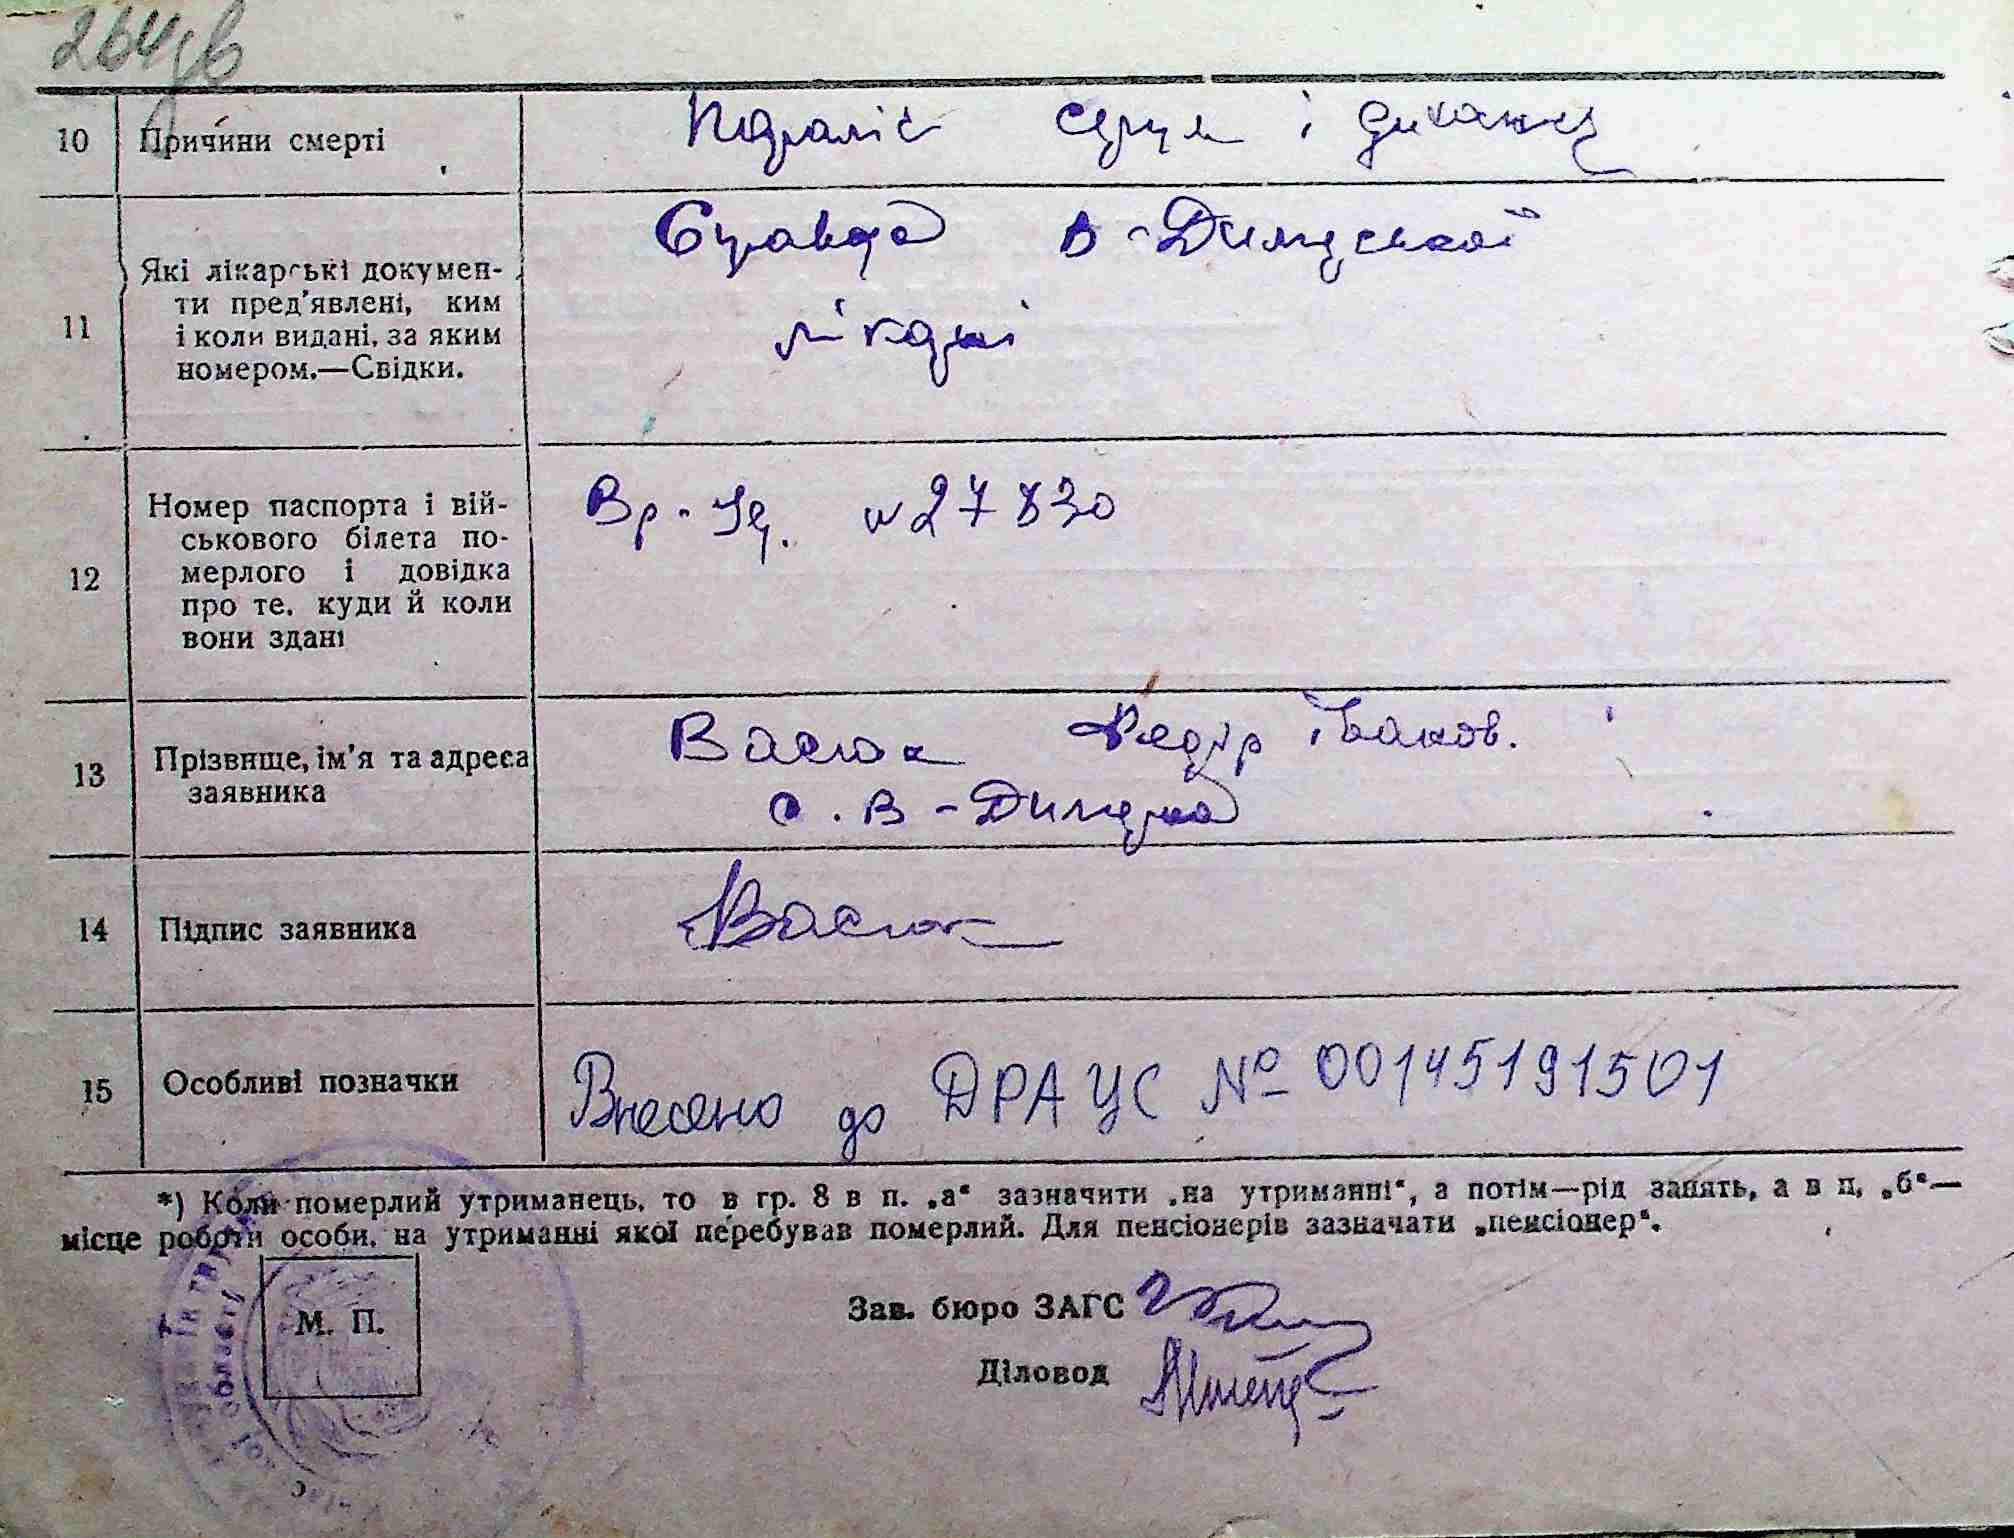 264зв
10 Причини смерті Параліс серця і дихання
11 Які лікарські докумен-
ти пред'явлені, ким
і коли видані, за яким
номером.—Свідки.
Справка В-Димерської
лікарні
12 Номер паспорта і вій-
ськового білета по-
мерлого і довідка
про те, куди й коли
вони здані
Вр. Уд. № 27830
13 Прізвище, ім'я та адреса
заявника
Васюк Федір Іванов.
с. В-Димерка
14 Підпис заявника Васюк
15 Особливі позначки Внесено до ДРАЦС № 00145191501
*) Коли померлий утриманець, то в гр. 8 в п. „а“ зазначити „на утриманні“, а потім—рід занять, а в п. „б“—
місце роботи особи, на утриманні якої перебував померлий. Для пенсіонерів зазначати „пенсіонер“.
М. П.
Зав. бюро ЗАГС
Діловод